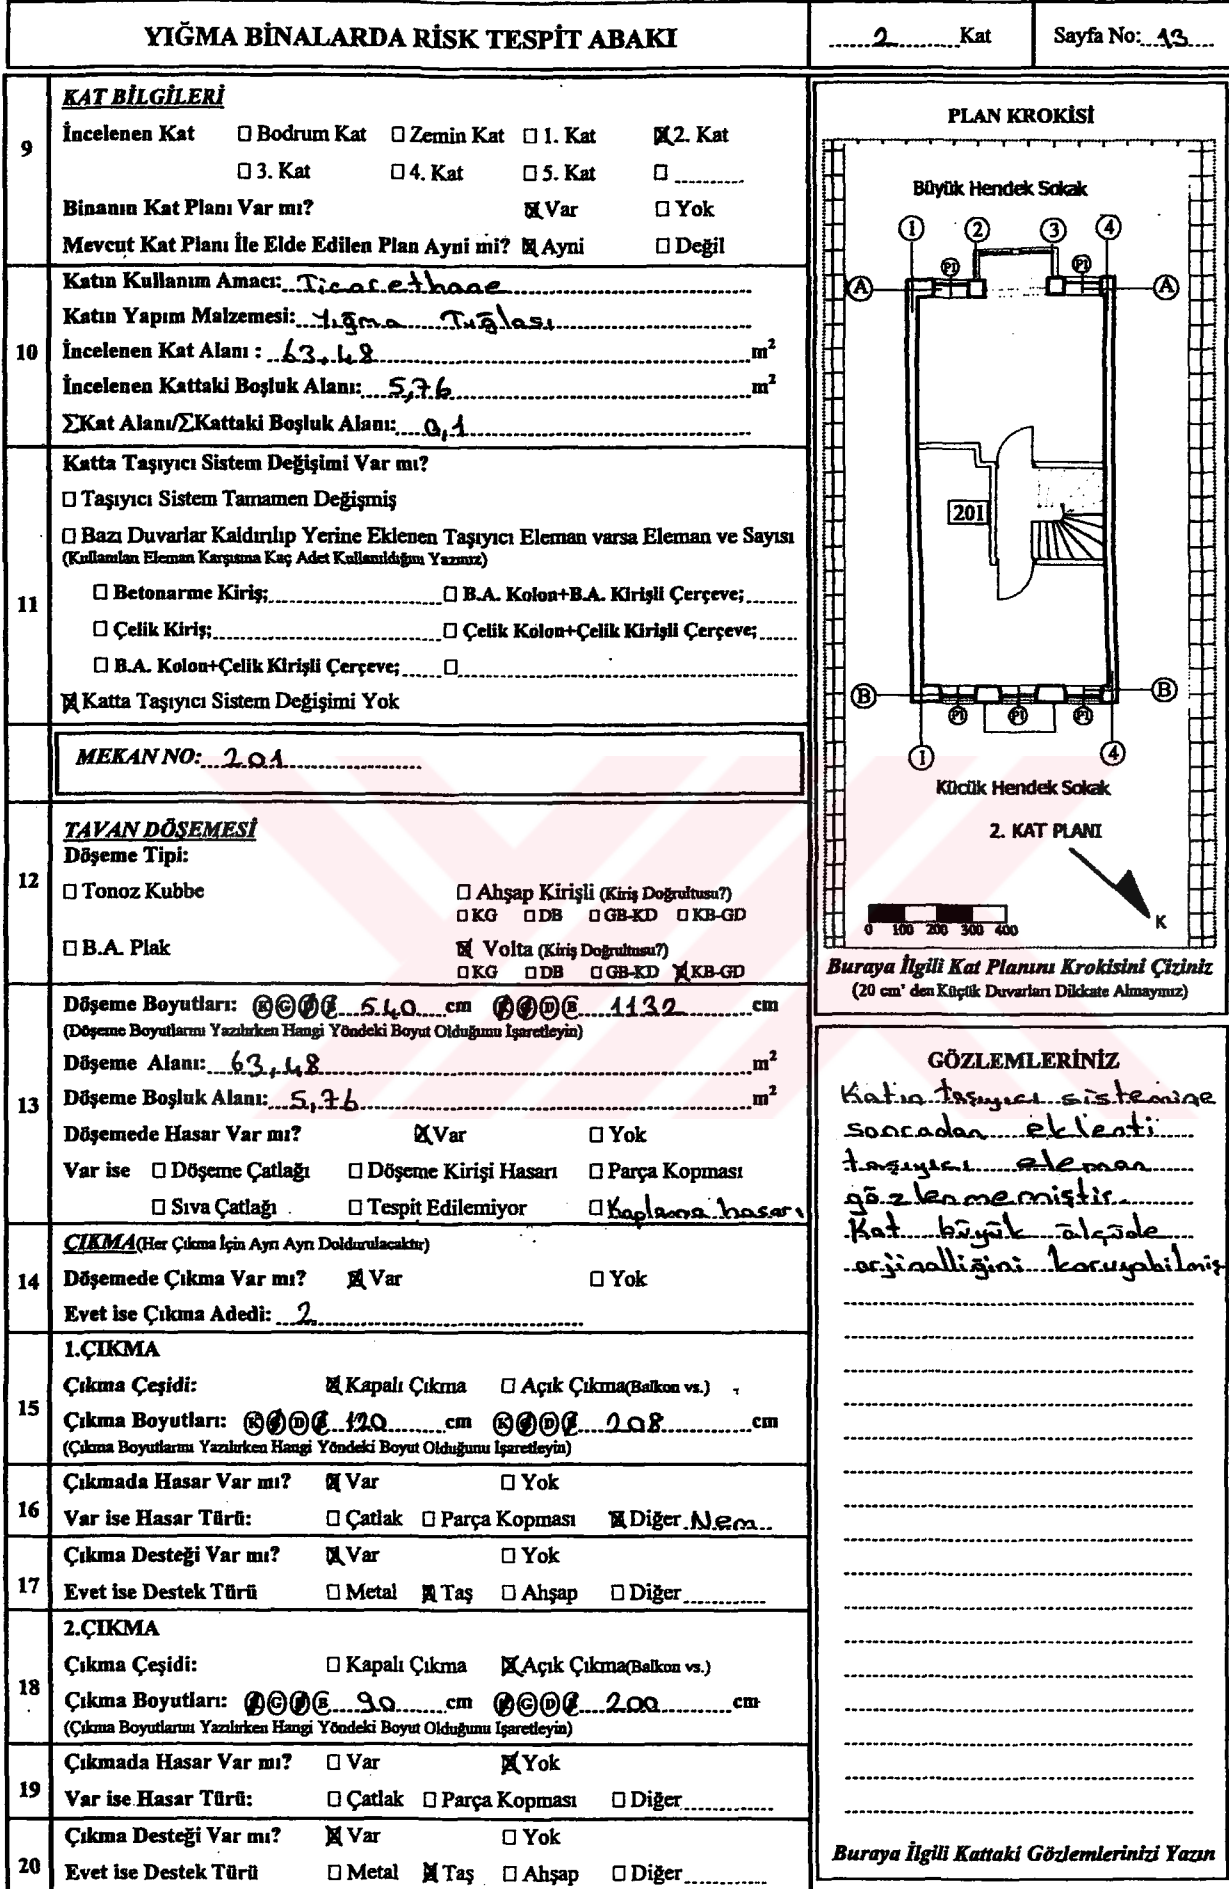 YIĞMA BİNALARDA RİSK TESPİT ABAKI
2 Kat
Sayfa No: 13
9
KAT BİLGİLERİ
İncelenen Kat □ Bodrum Kat □ Zemin Kat □ 1. Kat ☒ 2. Kat
□ 3. Kat □ 4. Kat □ 5. Kat □
Binanın Kat Planı Var mı? ☒ Var □ Yok
Mevcut Kat Planı İle Elde Edilen Plan Ayni mi? ☒ Ayni □ Değil
10
Katın Kullanım Amacı: Ticarethane
Katın Yapım Malzemesi: Yığma Tuğlası
İncelenen Kat Alanı : 63,48 m²
İncelenen Kattaki Boşluk Alanı: 5,76 m²
ΣKat Alanı/ΣKattaki Boşluk Alanı: 0,1
11
Katta Taşıyıcı Sistem Değişimi Var mı?
□ Taşıyıcı Sistem Tamamen Değişmiş
□ Bazı Duvarlar Kaldırılıp Yerine Eklenen Taşıyıcı Eleman varsa Eleman ve Sayısı
(Kullanılan Eleman Karşısına Kaç Adet Kullanıldığını Yazınız)
□ Betonarme Kiriş; □ B.A. Kolon+B.A. Kirişli Çerçeve;
□ Çelik Kiriş; □ Çelik Kolon+Çelik Kirişli Çerçeve;
□ B.A. Kolon+Çelik Kirişli Çerçeve; □
☒ Katta Taşıyıcı Sistem Değişimi Yok
MEKAN NO: 201
12
TAVAN DÖŞEMESİ
Döşeme Tipi:
□ Tonoz Kubbe □ Ahşap Kirişli (Kiriş Doğrultusu?)
□ KG □ DB □ GB-KD □ KB-GD
□ B.A. Plak ☒ Volta (Kiriş Doğrultusu?)
□ KG □ DB □ GB-KD ☒ KB-GD
13
Döşeme Boyutları: 540 cm 1132 cm
(Döşeme Boyutlarını Yazılırken Hangi Yöndeki Boyut Olduğunu İşaretleyin)
Döşeme Alanı: 63,48 m²
Döşeme Boşluk Alanı: 5,76 m²
Döşemede Hasar Var mı? ☒ Var □ Yok
Var ise □ Döşeme Çatlağı □ Döşeme Kirişi Hasarı □ Parça Kopması
□ Sıva Çatlağı □ Tespit Edilemiyor □ Kaplama hasarı
14
ÇIKMA (Her Çıkma İçin Ayrı Ayrı Doldurulacaktır)
Döşemede Çıkma Var mı? ☒ Var □ Yok
Evet ise Çıkma Adedi: 2
15
1.ÇIKMA
Çıkma Çeşidi: ☒ Kapalı Çıkma □ Açık Çıkma(Balkon vs.)
Çıkma Boyutları: 120 cm 208 cm
(Çıkma Boyutlarını Yazılırken Hangi Yöndeki Boyut Olduğunu İşaretleyin)
16
Çıkmada Hasar Var mı? ☒ Var □ Yok
Var ise Hasar Türü: □ Çatlak □ Parça Kopması ☒ Diğer Nem
17
Çıkma Desteği Var mı? ☒ Var □ Yok
Evet ise Destek Türü □ Metal ☒ Taş □ Ahşap □ Diğer
18
2.ÇIKMA
Çıkma Çeşidi: □ Kapalı Çıkma ☒ Açık Çıkma(Balkon vs.)
Çıkma Boyutları: 90 cm 200 cm
(Çıkma Boyutlarını Yazılırken Hangi Yöndeki Boyut Olduğunu İşaretleyin)
19
Çıkmada Hasar Var mı? □ Var ☒ Yok
Var ise Hasar Türü: □ Çatlak □ Parça Kopması □ Diğer
20
Çıkma Desteği Var mı? ☒ Var □ Yok
Evet ise Destek Türü □ Metal ☒ Taş □ Ahşap □ Diğer
PLAN KROKİSİ
Büyük Hendek Sokak
1 2 3 4
P1 P1
A A
201
B B
P1 P1 P1
1 4
Küçük Hendek Sokak
2. KAT PLANI
K
0 100 200 300 400
Buraya İlgili Kat Planını Krokisini Çiziniz
(20 cm' den Küçük Duvarları Dikkate Almayınız)
GÖZLEMLERİNİZ
Katın taşıyıcı sistemine
sonradan eklenti
taşıyıcı eleman
gözlenmemiştir.
Kat büyük ölçüde
orjinalliğini koruyabilmiş
Buraya İlgili Kattaki Gözlemlerinizi Yazın